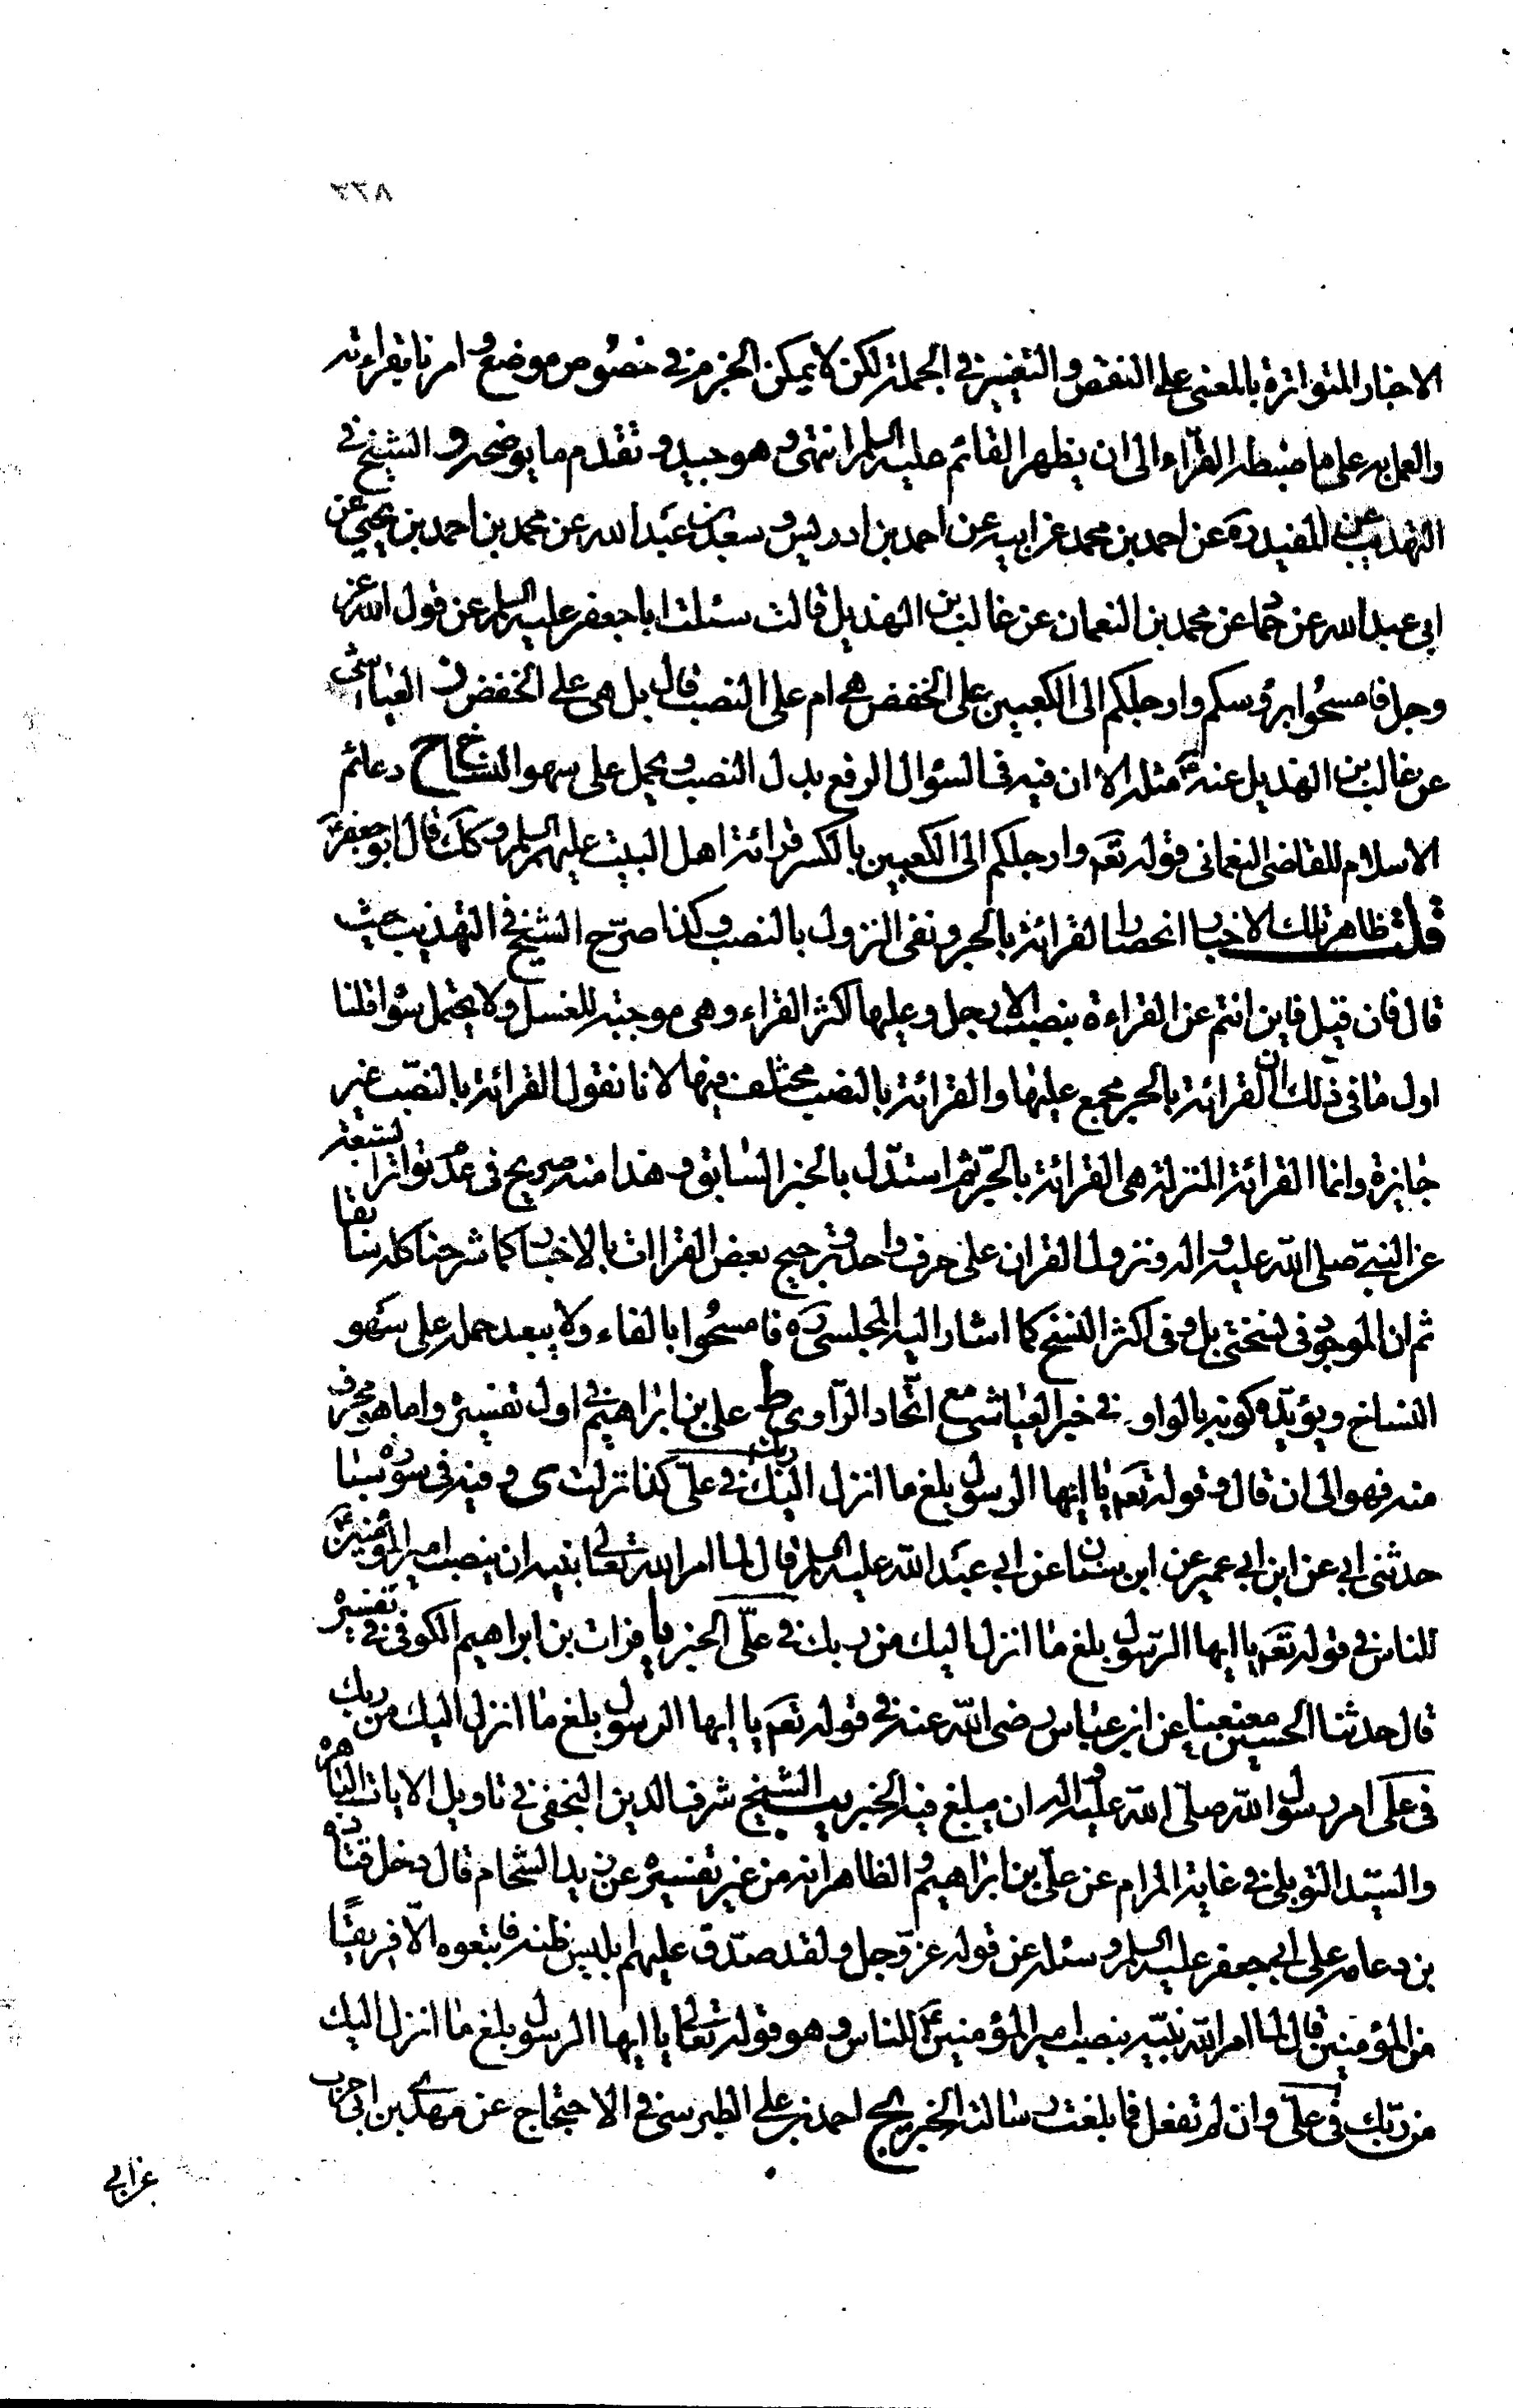 ٢٣٨
الاخبار المتواترة بالمعنى على النقص والتغيير في الجملة لكن لا يمكن الجزم في خصوص موضع و امرنا بقراءته
والعمل به على ما ضبطه القراء الى ان يظهر القائم عليه السلم انتهى و هو جيد و تقدم ما يوضحه و الشيخ في
التهذيب عن المفيد ره عن احمد بن محمد عن ابيه عن احمد بن ادريس و سعد بن عبد الله عن محمد بن احمد بن يحيى عن
ابي عبد الله عن حماد عن محمد بن النعمان عن غالب بن الهذيل قالت سئلت ابا جعفر عليه السلم عن قول الله عز
وجل فامسحوا برؤسكم وارجلكم الى الكعبين على الخفض هي ام على النصب قال بل هي على الخفض ن العياشي
عن غالب بن الهذيل عنه ع مثله الا ان فيه في السؤال الرفع بدل النصب و يحمل على سهو النساخ ح دعائم
الاسلام للقاضي النعماني قوله تعم وارجلكم الى الكعبين بالكسر قرائة اهل البيت عليهم السلم و كك قال ابو جعفر ع
قلت ظاهر تلك الاخبار انحصار القرائة بالجر و نفى النزول بالنصب و كذا صرّح الشيخ في التهذيب حيث
قال فان قيل فاين انتم عن القراءة بنصب الارجل وعليها اكثر القراء وهي موجبة للغسل ولا يحتمل سواه قلنا
اول ما في ذلك ان القرائة بالجر مجمع عليها والقرائة بالنصب مختلف فيها لانا نقول القرائة بالنصب غير
جايزة وانما القرائة المنزلة هي القرائة بالجرّ ثم استدّل بالخبر السابق و هذا منه صريح في عدم تواتر السبعة
عن النبي صلى الله عليه واله و نزول القران على حرف واحد و ترجيح بعض القراات بالاخبار كما شرحنا كله سابقا
ثم ان الموجود في نسختي بل و في اكثر النسخ كما اشار اليه المجلسي ره فامسحوا بالفاء ولا يبعد حمله على سهو
النساخ ويؤيّده كونه بالواو في خبر العياشي مع اتّحاد الرّاوي ط علي بن ابراهيم في اول تفسيره واما ما هو محرف
منه فهو الى ان قال و قوله تعم يا ايها الرسول بلغ ما انزل اليك من ربك في علىّ كذا نزلت ى و فيه في سورة سبا
حدثني ابي عن ابن ابي عمير عن ابن سنان عن ابي عبد الله عليه السلم قال لما امر الله تعالى نبيه ان ينصب امير المؤمنين ع
للناس في قوله تعم يا ايها الرّسول بلغ ما انزل اليك من ربك في علّى الخبر يا فرات بن ابراهيم الكوفى في تفسيره
قال حدثنا الحسين معنعنا عن ابن عباس رضى الله عنه في قوله تعم يا ايها الرسول بلغ ما انزل اليك من ربك
في على امر رسول الله صلّى الله عليه واله ان يبلغ فيه الخبر يب الشيخ شرف الدين النجفى في تاويل الايات الباهره
والسيّد التوبلى في غاية المرام عن علي بن ابراهيم و الظاهر انه من غير تفسيره عن زيد الشحام قال دخل قتادة
بن دعامه على ابي جعفر عليه السلم و سئله عن قوله عزّ وجل و لقد صدّق عليهم ابليس ظنه فاتبعوه الّا فريقًا
من المؤمنين قال لما امر الله نبيّه بنصب امير المؤمنين ع للناس و هو قوله تعالى يا ايها الرسول بلغ ما انزل اليك
من ربّك في علىّ وان لم تفعل فما بلغت رسالته الخبر يج احمد بن على الطبرسي في الاحتجاج عن مهدى بن ابي حرب
عن ابي